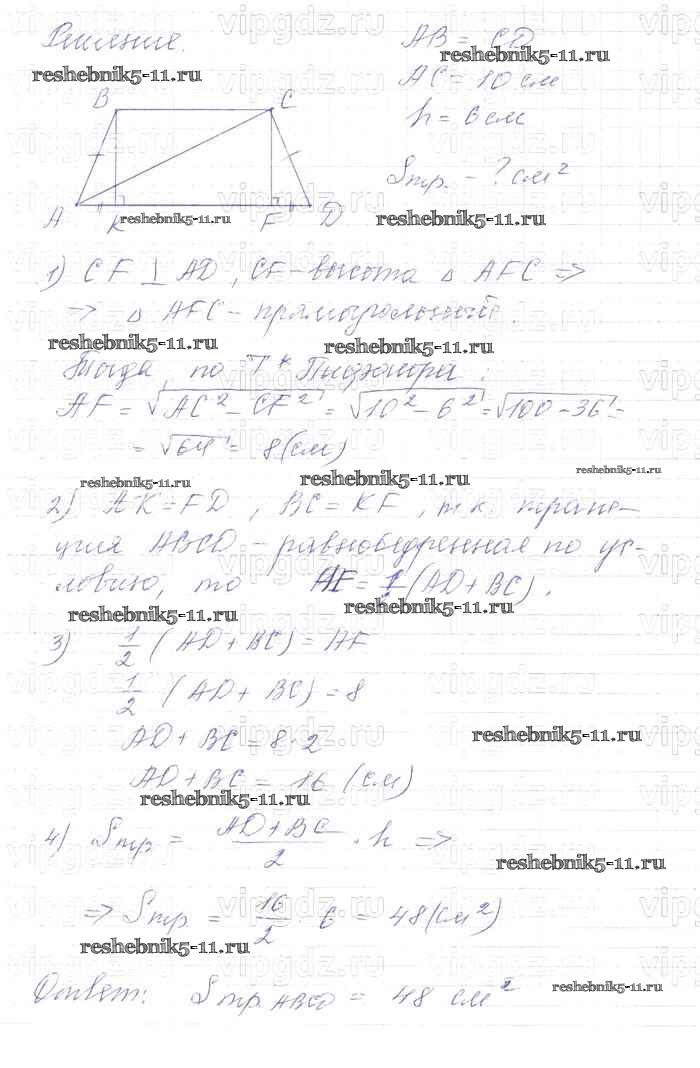 Решение.
AB = CD
reshebnik5-11.ru
reshebnik5-11.ru
AC = 10 см
h = 6 см
B C
Sтр. - ? см²
A K F D
reshebnik5-11.ru
reshebnik5-11.ru
1) CF ⊥ AD, CF - высота △ AFC ⇒
⇒ △ AFC - прямоугольный.
reshebnik5-11.ru
reshebnik5-11.ru
Тогда, по Т. Пифагора:
AF = √AC² - CF² = √10² - 6² = √100 - 36 =
= √64 = 8 (см)
reshebnik5-11.ru
reshebnik5-11.ru
reshebnik5-11.ru
2) AK = FD, BC = KF, т.к. трапе-
ция ABCD - равнобедренная по ус-
ловию, то AF = 1/2 (AD + BC).
reshebnik5-11.ru
reshebnik5-11.ru
3) 1/2 (AD + BC) = AF
1/2 (AD + BC) = 8
AD + BC = 8 · 2
reshebnik5-11.ru
AD + BC = 16 (см)
reshebnik5-11.ru
4) Sтр = AD + BC / 2 · h ⇒
reshebnik5-11.ru
⇒ Sтр. = 16/2 · 6 = 48 (см²)
reshebnik5-11.ru
Ответ: Sтр. ABCD = 48 см²
reshebnik5-11.ru